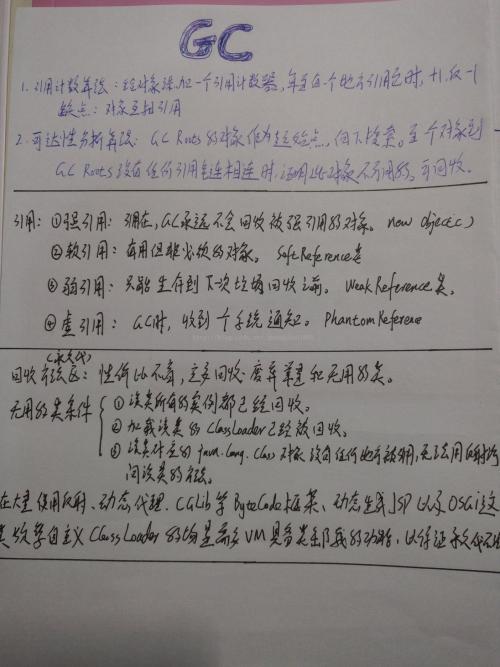 GC
1. 引用计数算法：给对象添加一个引用计数器，每当有一个地方引用它时，+1，反-1
缺点：对象互相引用
2. 可达性分析算法：GC Roots的对象作为起始点，向下搜索。当一个对象到
GC Roots没有任何引用链相连时，证明此对象不可用的。可回收。
引用：①强引用：引用在，GC永远不会回收被强引用的对象。new Object()
②软引用：有用但非必须的对象。SoftReference类
③弱引用：只能生存到下次垃圾回收之前。WeakReference类。
④虚引用：GC时，收到一个系统通知。PhantomReference
(永久代)
回收方法区：性价比不高，主要回收废弃常量和无用的类。
无用的类条件
①该类所有的实例都已经回收。
②加载该类的ClassLoader已经被回收。
③该类对应的java.lang.Class对象没有任何地方被引用，无法用反射访
问该类的方法。
在大量使用反射、动态代理、CGLib等ByteCode框架、动态生成JSP以及OSGi这
类频繁自定义ClassLoader的场景需要VM具备类卸载的功能，以保证永久代不